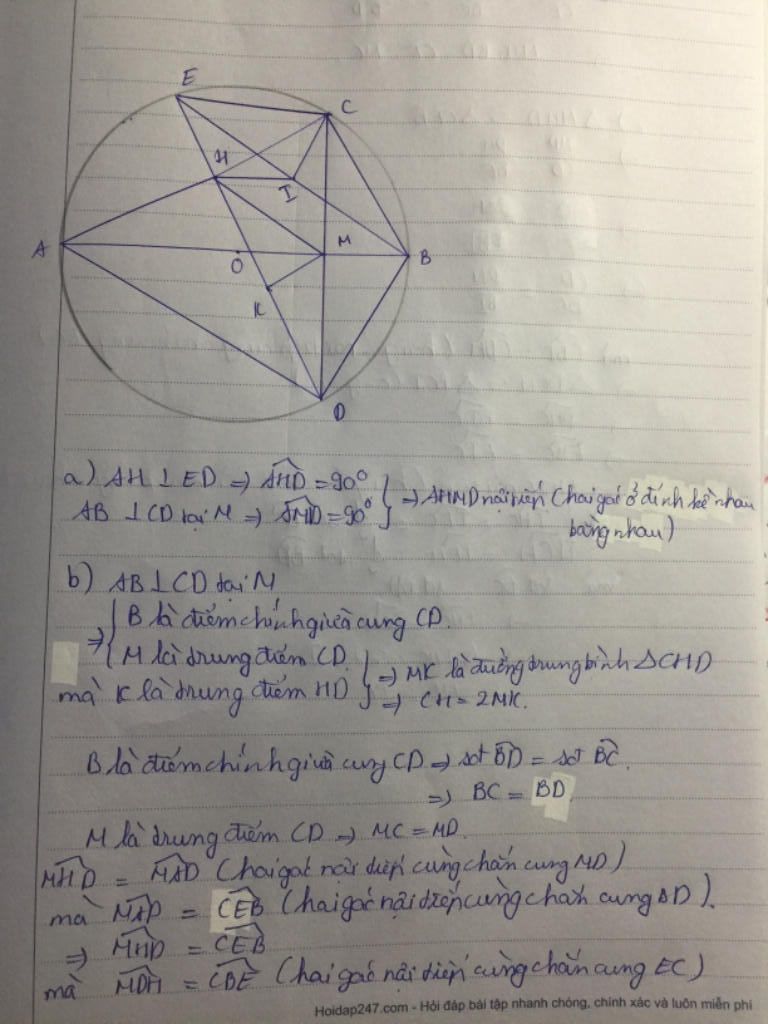 E
C
H
I
A
M
B
O
K
D
a) AH ⊥ ED ⇒ \widehat{AHD} = 90° } ⇒ AHMD nội tiếp (hai góc ở đỉnh kề nhau
AB ⊥ CD tại M ⇒ \widehat{AMD} = 90°
bằng nhau)
b) AB ⊥ CD tại M
⇒ { B là điểm chính giữa cung CD.
M là trung điểm CD. } ⇒ MK là đường trung bình ΔCHD
mà K là trung điểm HD ⇒ CH = 2MK.
B là điểm chính giữa cung CD ⇒ sđ \widehat{BD} = sđ \widehat{BC}.
⇒ BC = BD
M là trung điểm CD ⇒ MC = MD.
\widehat{MHD} = \widehat{MAD} (hai góc nội tiếp cùng chắn cung MD)
mà \widehat{MAD} = \widehat{CEB} (hai góc nội tiếp cùng chắn cung BD).
⇒ \widehat{MHD} = \widehat{CEB}
mà \widehat{MDH} = \widehat{CBE} (hai góc nội tiếp cùng chắn cung EC)
Hoidap247.com - Hỏi đáp bài tập nhanh chóng, chính xác và luôn miễn phí